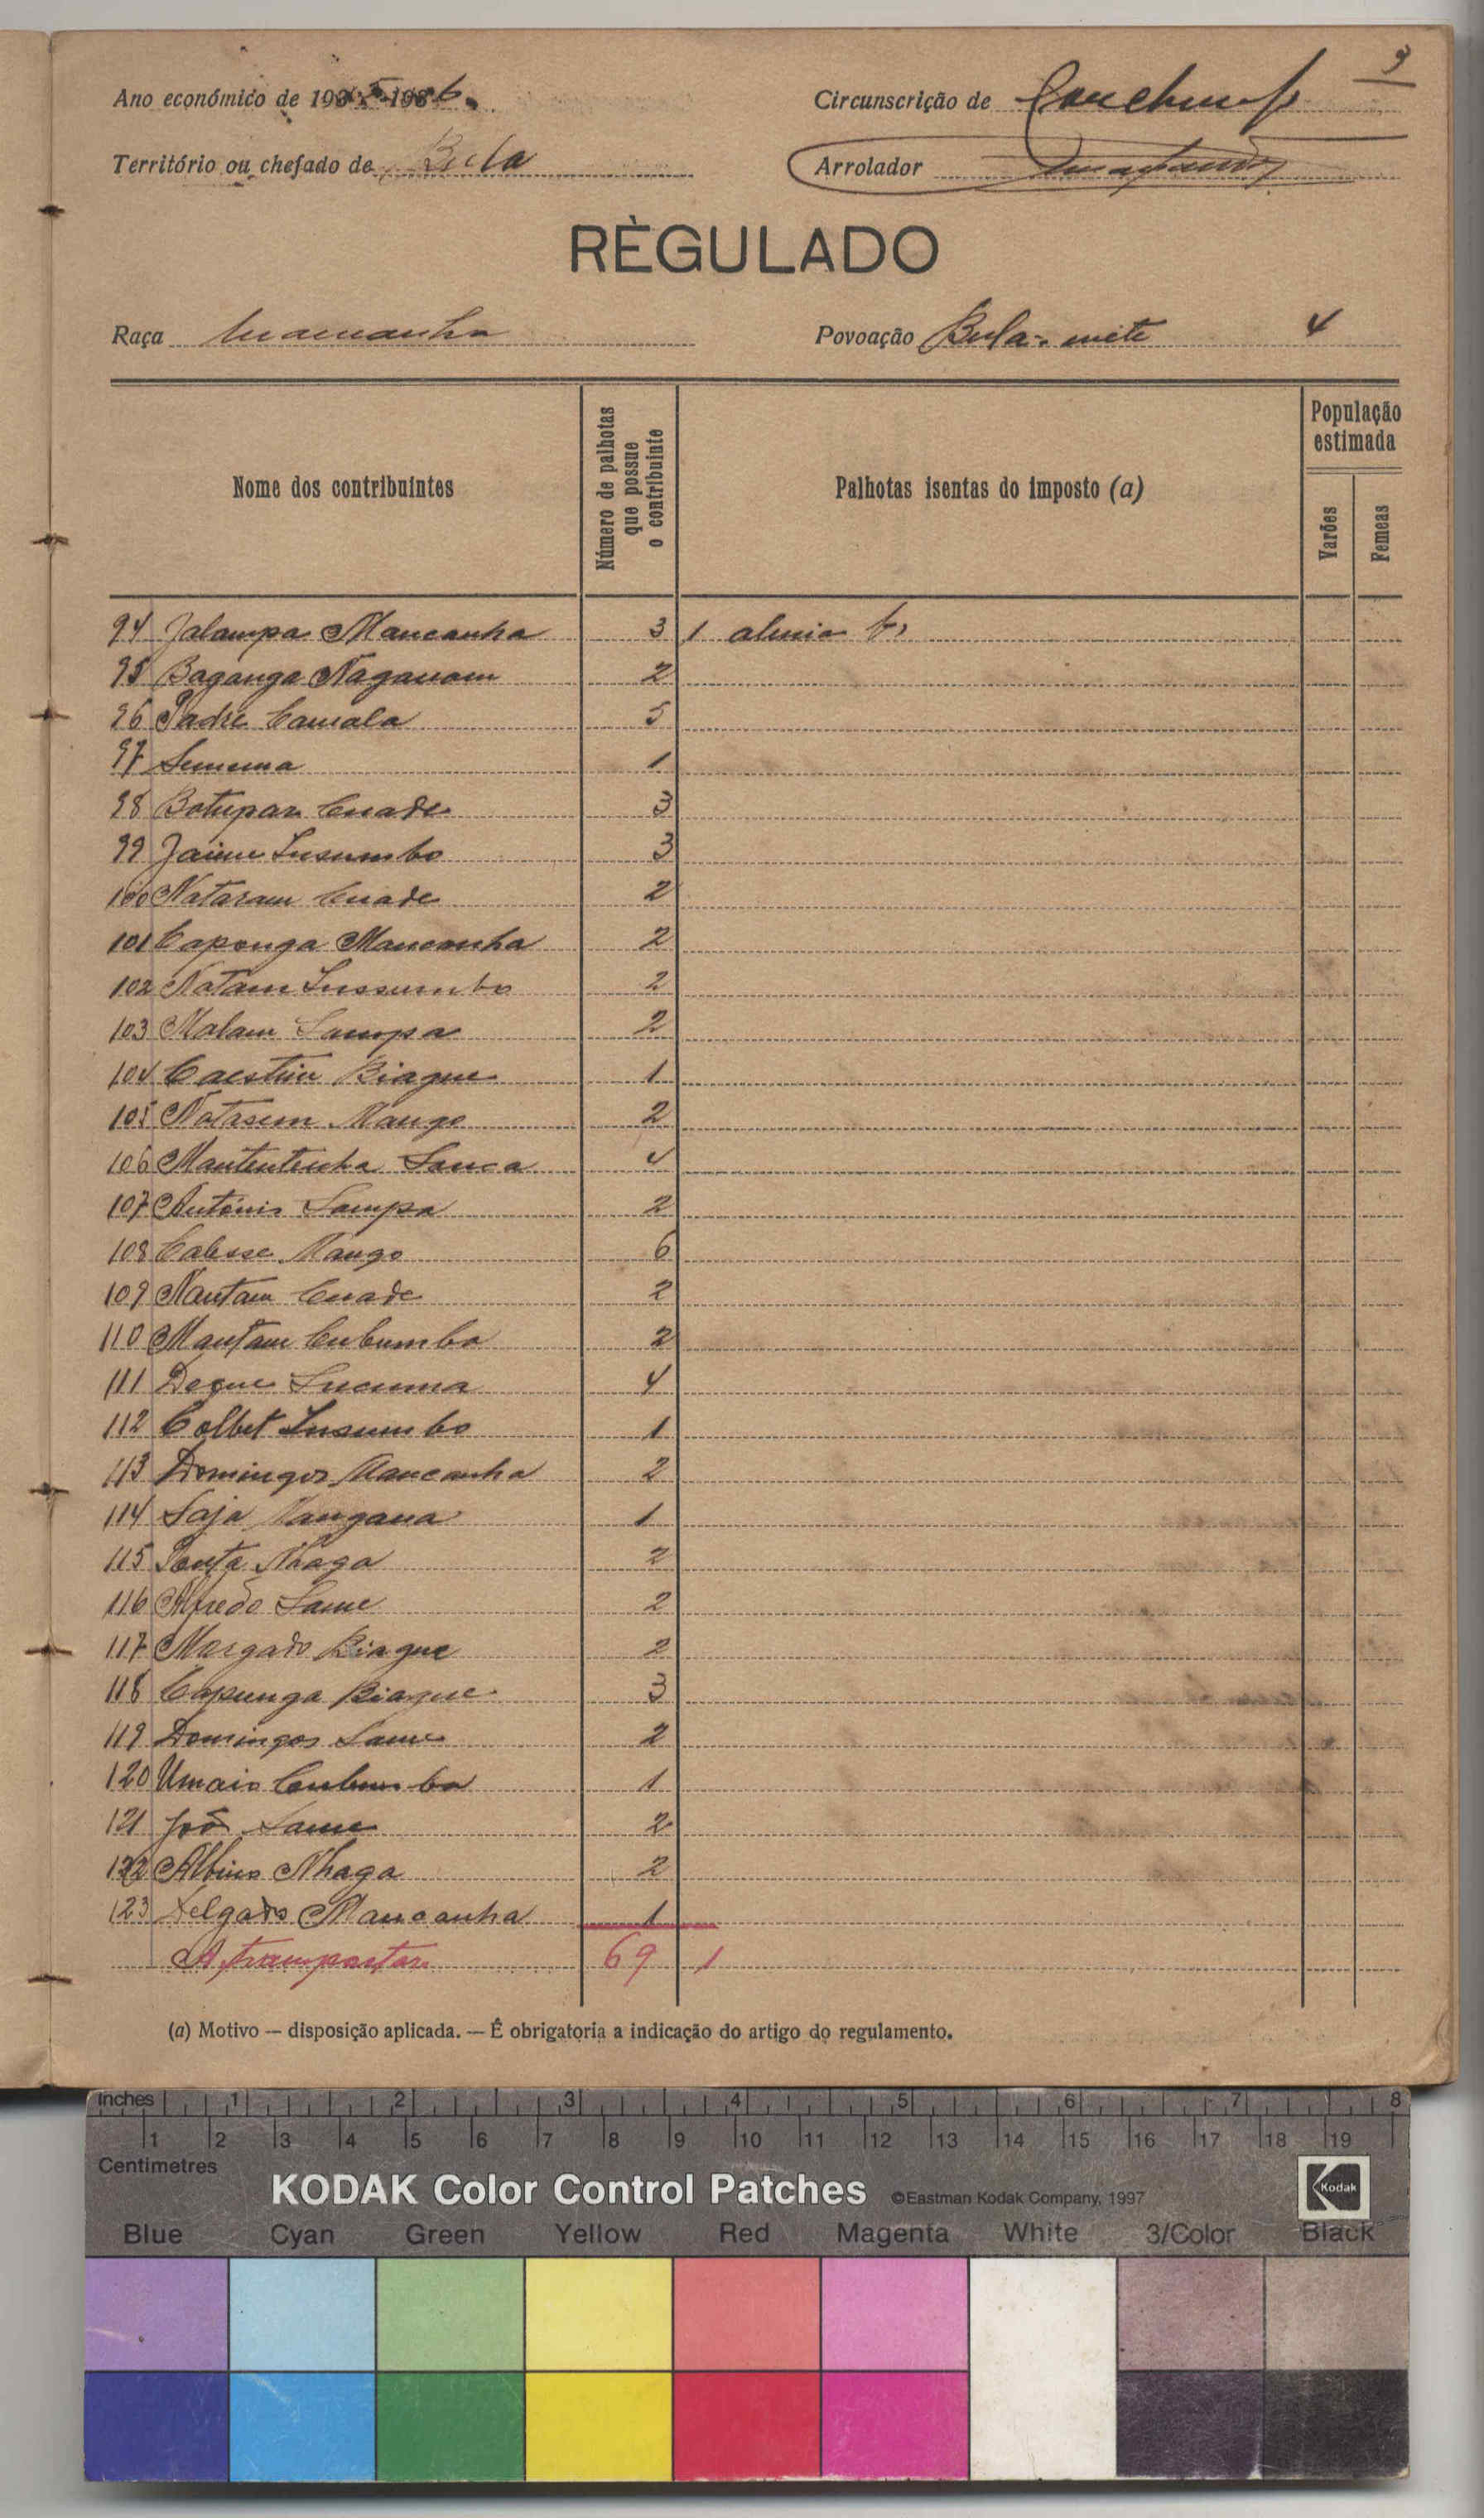 3
Ano económico de 1935-1936.
Circunscrição de
Território ou chefado de Bula
Arrolador
RÈGULADO
Raça Mancanha
Povoação Bula-mete 4
Nome dos contribuintes
Número de palhotas que possue o contribuinte
Palhotas isentas do imposto (a)
População estimada
Varões
Femeas
94 Jalampa Mancanha 3 1
95 Baganga Naganam 2
96 Padre Camala 5
97 1
98 Botupar Cuade 3
99 Jaime Insumbo 3
100 Nataram Cuade 2
101 Caponga Mancanha 2
102 Natam Inssumbo 2
103 Malam Sampa 2
104 Biague 1
105 Natasem Mango 2
106 Sanca 4
107 António Sampa 2
108 Cabesse Mango 6
109 Nantam Cuade 2
110 Mantam Cubumba 2
111 Deque 4
112 Colbet Insumbo 1
113 Domingos Mancanha 2
114 Saja Mangana 1
115 Nhaga 2
116 Alfredo Same 2
117 Morgado Biague 2
118 Capunga Biague 3
119 Domingos Same 2
120 Umaro Cubumba 1
121 Joô Same 2
122 Albino Nhaga 2
123 Delgado Mancanha 1
A transportar 69 1
(a) Motivo — disposição aplicada. — É obrigatoria a indicação do artigo do regulamento.
Inches 1 2 3 4 5 6 7 8
1 2 3 4 5 6 7 8 9 10 11 12 13 14 15 16 17 18 19
Centimetres
KODAK Color Control Patches ©Eastman Kodak Company, 1997 Kodak
Blue Cyan Green Yellow Red Magenta White 3/Color Black